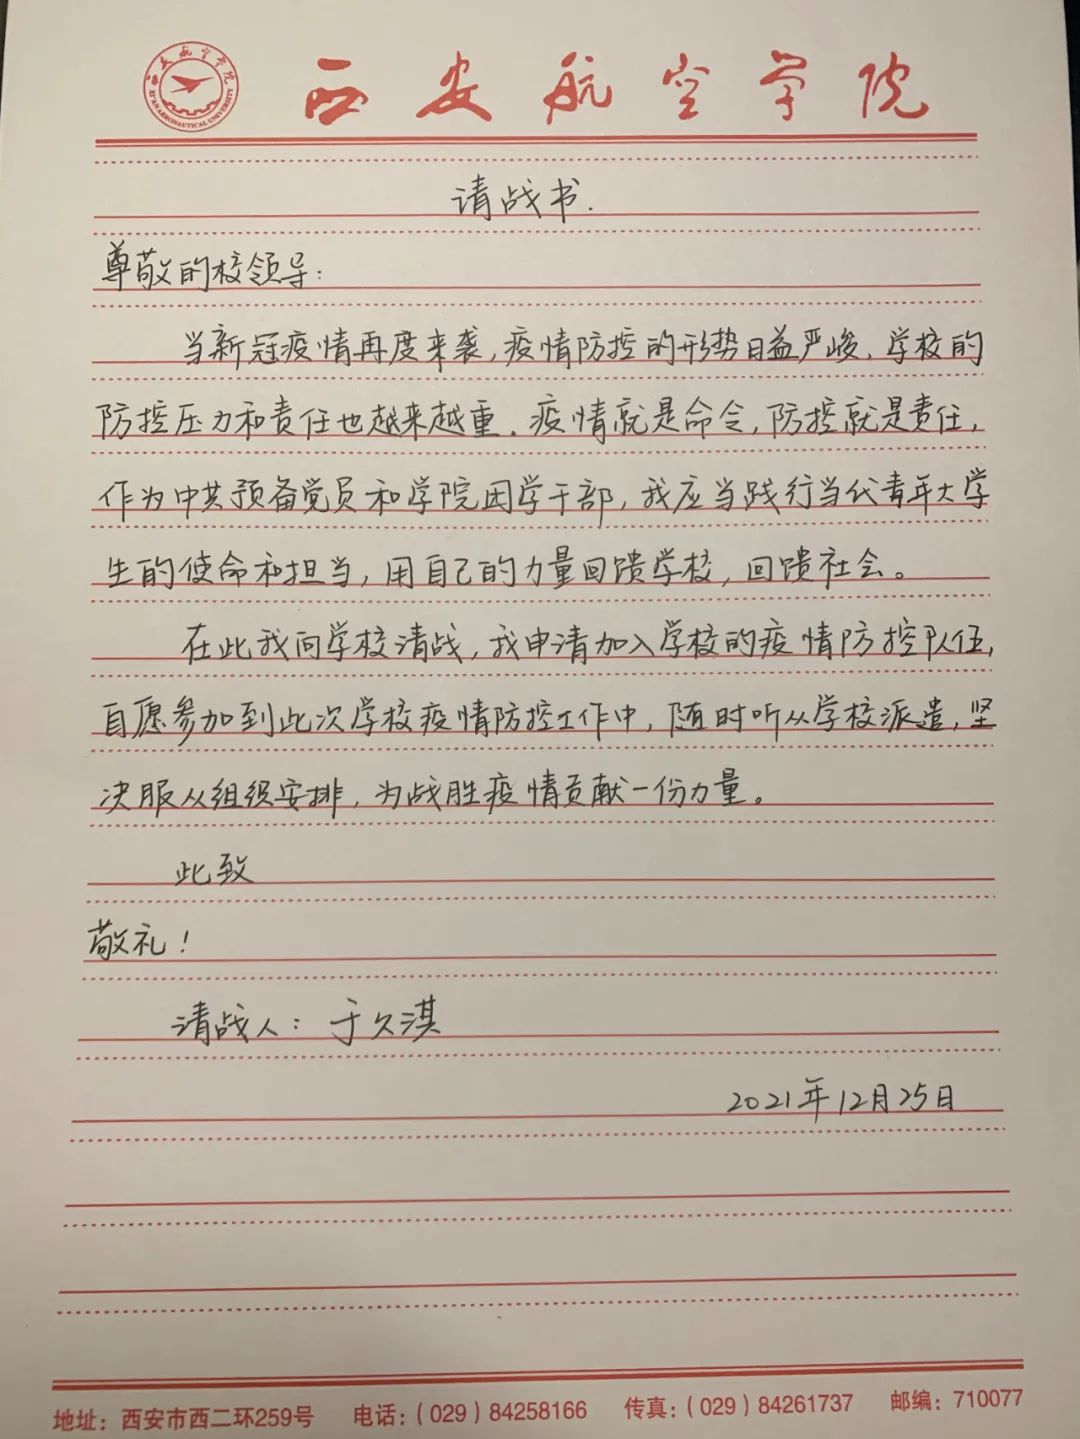 西安航空学院
XI'AN AERONAUTICAL UNIVERSITY
西安航空学院
请战书.
尊敬的校领导:
当新冠疫情再度来袭,疫情防控的形势日益严峻,学校的
防控压力和责任也越来越重.疫情就是命令,防控就是责任,
作为中共预备党员和学院团学干部,我应当践行当代青年大学
生的使命和担当,用自己的力量回馈学校,回馈社会。
在此我向学校请战,我申请加入学校的疫情防控队伍,
自愿参加到此次学校疫情防控工作中,随时听从学校派遣,坚
决服从组织安排,为战胜疫情贡献一份力量。
此致
敬礼!
请战人:于久淇
2021年12月25日
地址:西安市西二环259号 电话:(029)84258166 传真:(029)84261737 邮编:710077